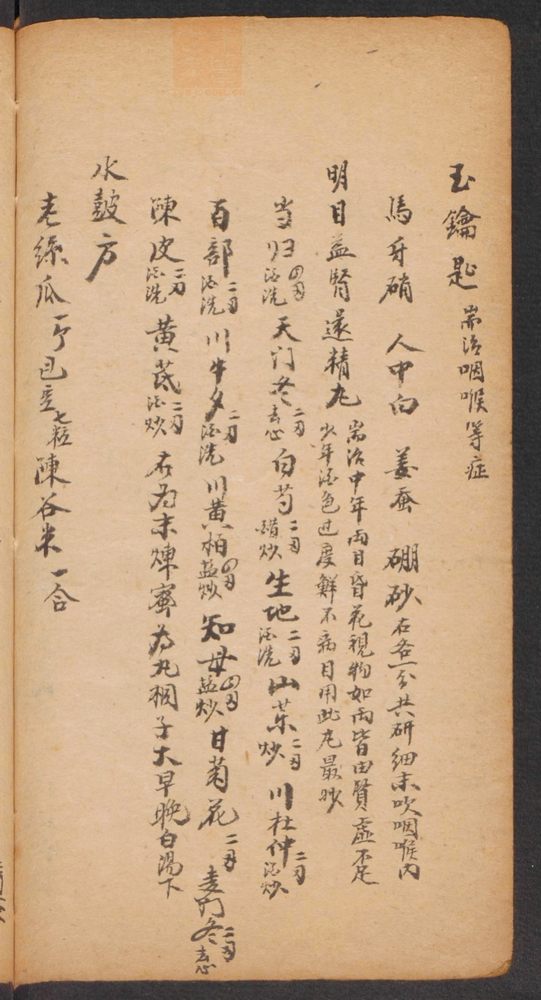 玉鑰匙 耑治咽喉等症
馬牙硝 人中白 姜蚕 硼砂 右各一分共研細末吹咽喉內
明目益腎還精丸 耑治中年両目昏花視物如雨皆由腎虛不足
少年酒色过度鮮不病目用此丸最妙
当归四刄酒洗 天门冬二刄去心 白芍二刄醋炒 生地二刄酒洗 山藥二刄炒 川杜仲二刄酒炒
百部二刄酒洗 川牛夕二刄酒洗 川黃柏四刄盐炒 知母四刄盐炒 甘菊花二刄 麦门冬二刄去心
陳皮二刄酒洗 黃芪二刄酒炒 右為末煉蜜為丸桐子大早晚白湯下
水皷方
老絲瓜一个 巴豆七粒 陳谷米一合